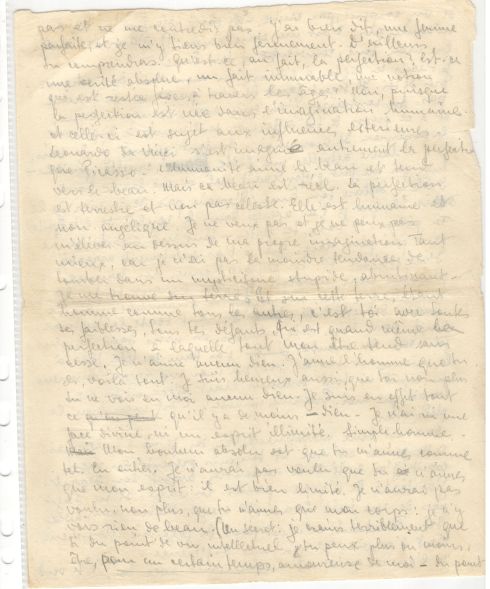 pas et ne me contredis pas j'ai bien dit, une femme
parfaite, et je m'y tiens bien fermement. D'ailleurs
tu comprendras. Qu'est-ce, au fait, la perfection? Est-ce
une vérité absolue, un fait immuable, une notion
qui est restée fixe à travers les âges? Non, puisque
la perfection est née dans l'imagination humaine.
et celle-ci est sujet aux influences extérieures.
Leonardo da Vinci s'est imaginé autrement la perfection
que Picasso. L'humanité aime le beau et tend
vers le beau. Mais ce beau est réel. La perfection
est terrestre et non pas céleste. Elle est humaine et
non angélique. Je ne veux pas et je ne peux pas
m'élever au dessus de ma propre imagination. Tant
mieux, car je n'ai pas la moindre tendance de
tomber dans un mysticisme stupide, abrutissant.
Je me trouve sur terre. Et sur cette terre, étant
homme comme tous les autres, c'est toi avec toutes
tes faiblesses, tous tes défauts, qui est quand même la
perfection à laquelle tout mon être tend sans
cesse. Je n'aime aucun dieu. J'aime l'homme que tu
es, voilà tout. Je suis heureux aussi, que toi non plus
tu ne vois en moi aucun dieu. Je suis en effet tout
ce qu'il y a de moins – dieu. Je n'ai ni une
face divine, ni un esprit illimité. Simple homme.
Mon bonheur absolu est que tu m'aimes comme
tel, en entier. Je n'aurai pas voulu que tu n'aimes
que mon esprit: il est bien limité. Je n'aurai pas
voulu, non plus, que tu n'aimes que mon corps: je n'y
vois rien de beau. (Un secret: je crains terriblement que
si du point de vue intellectuel tu peux plus ou moins,
être, pour un certain temps, amoureuse de moi – du point